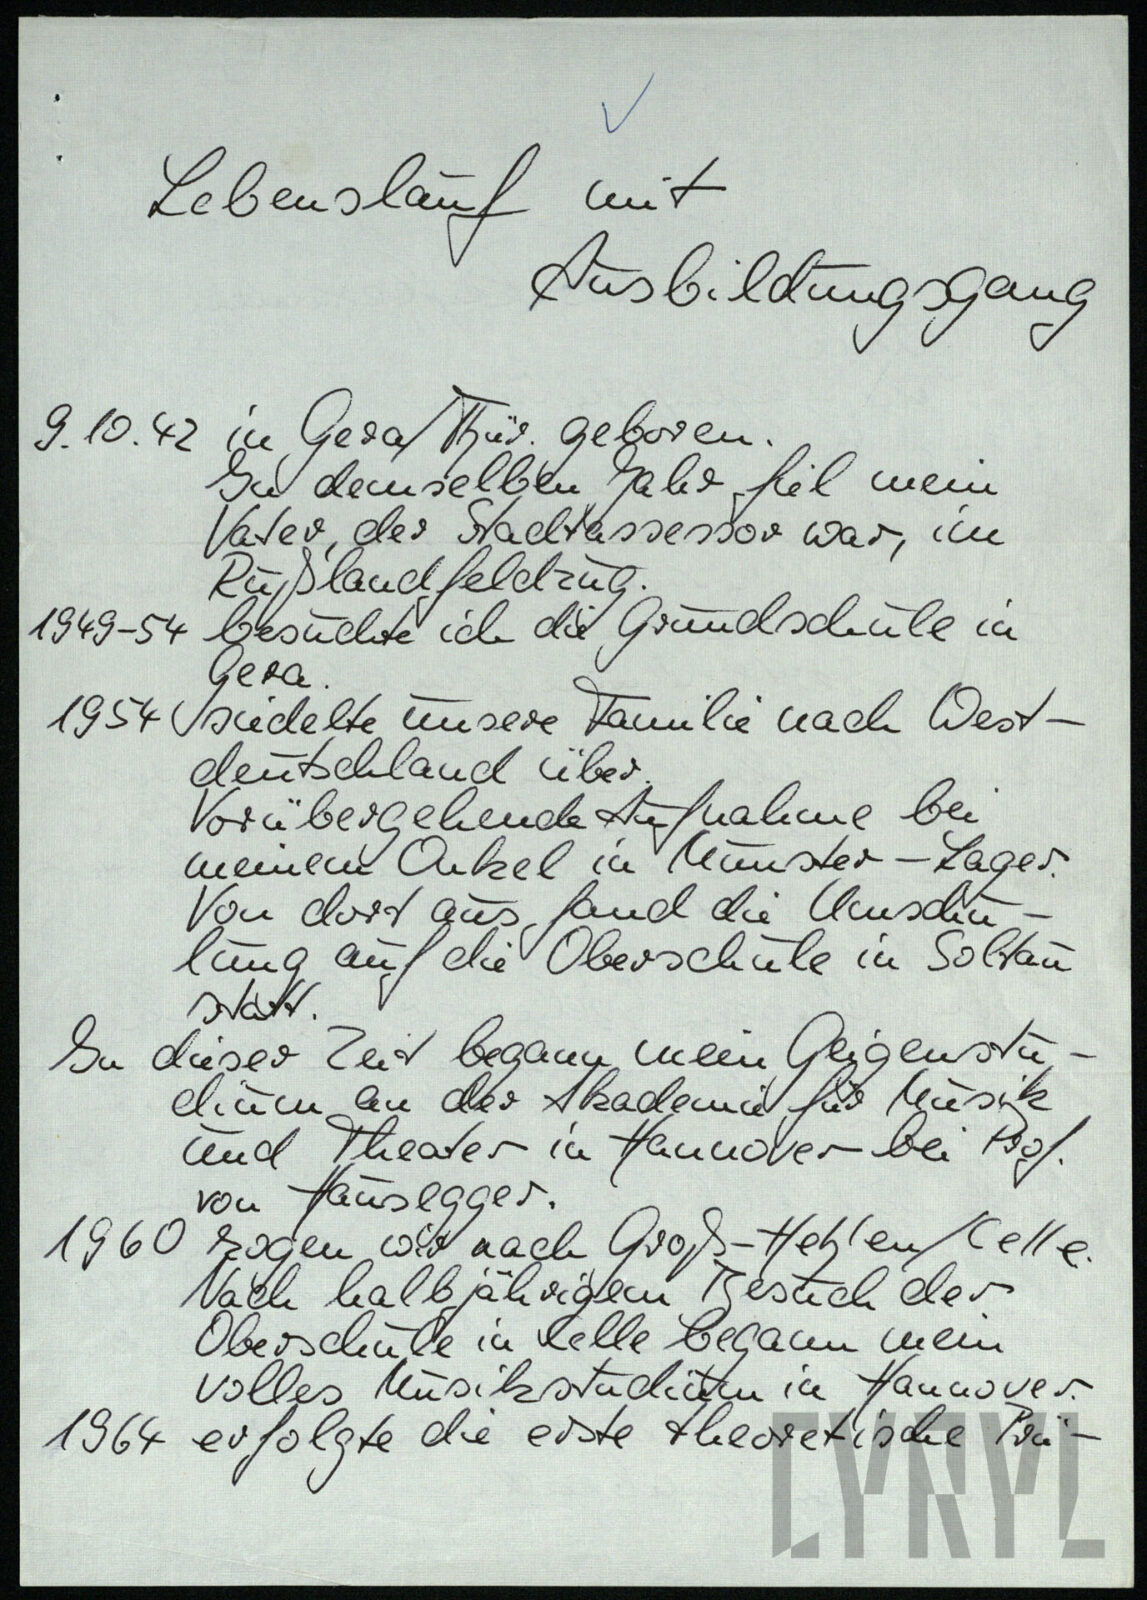 Lebenslauf mit
Ausbildungsgang
9.10.42 in Gera/Thür. geboren.
In demselben Jahr fiel mein
Vater, der Stadtassessor war, im
Rußlandfeldzug.
1949-54 besuchte ich die Grundschule in
Gera.
1954 siedelte unsere Familie nach West-
deutschland über.
Vorübergehende Aufnahme bei
meinem Onkel in Munster-Lager.
Von dort aus fand die Umschu-
lung auf die Oberschule in Soltau
statt.
In dieser Zeit begann mein Geigenstu-
dium an der Akademie für Musik
und Theater in Hannover bei Prof.
von Hausegger.
1960 zogen wir nach Groß-Hehlen/Celle.
Nach halbjährigem Besuch der
Oberschule in Celle begann mein
volles Musikstudium in Hannover.
1964 erfolgte die erste theoretische Prü-
LYNYL